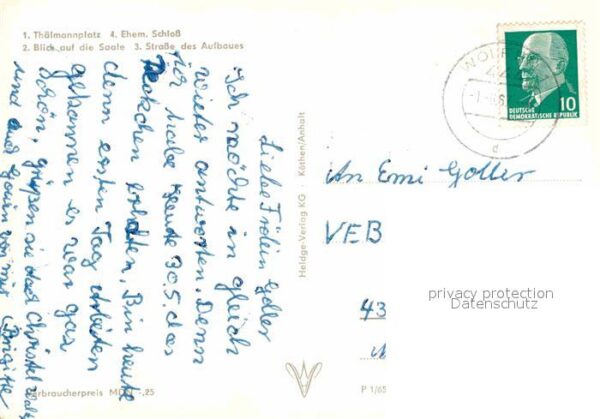 1. Thälmannplatz 4. Ehem. Schloß
2. Blick auf die Saale 3. Straße des Aufbaues
Liebe Frölin Goller
Ich möchte in gleich
wieter antworten. Denn
wir habe Heute 30.5 das
Päkchen erhalten. Bin heute
denn ersten Tag arbeiten
gekommen es war gas
schön, grüßen sie das Christel
und auch
von mir Brigitte
Verbraucherpreis MDN -,25
Heldge-Verlag KG · Köthen/Anhalt
P 1/65
WOLFEN
DEUTSCHE
DEMOKRATISCHE REPUBLIK
10
An Emi Goller
VEB
43
privacy protection
Datenschutz